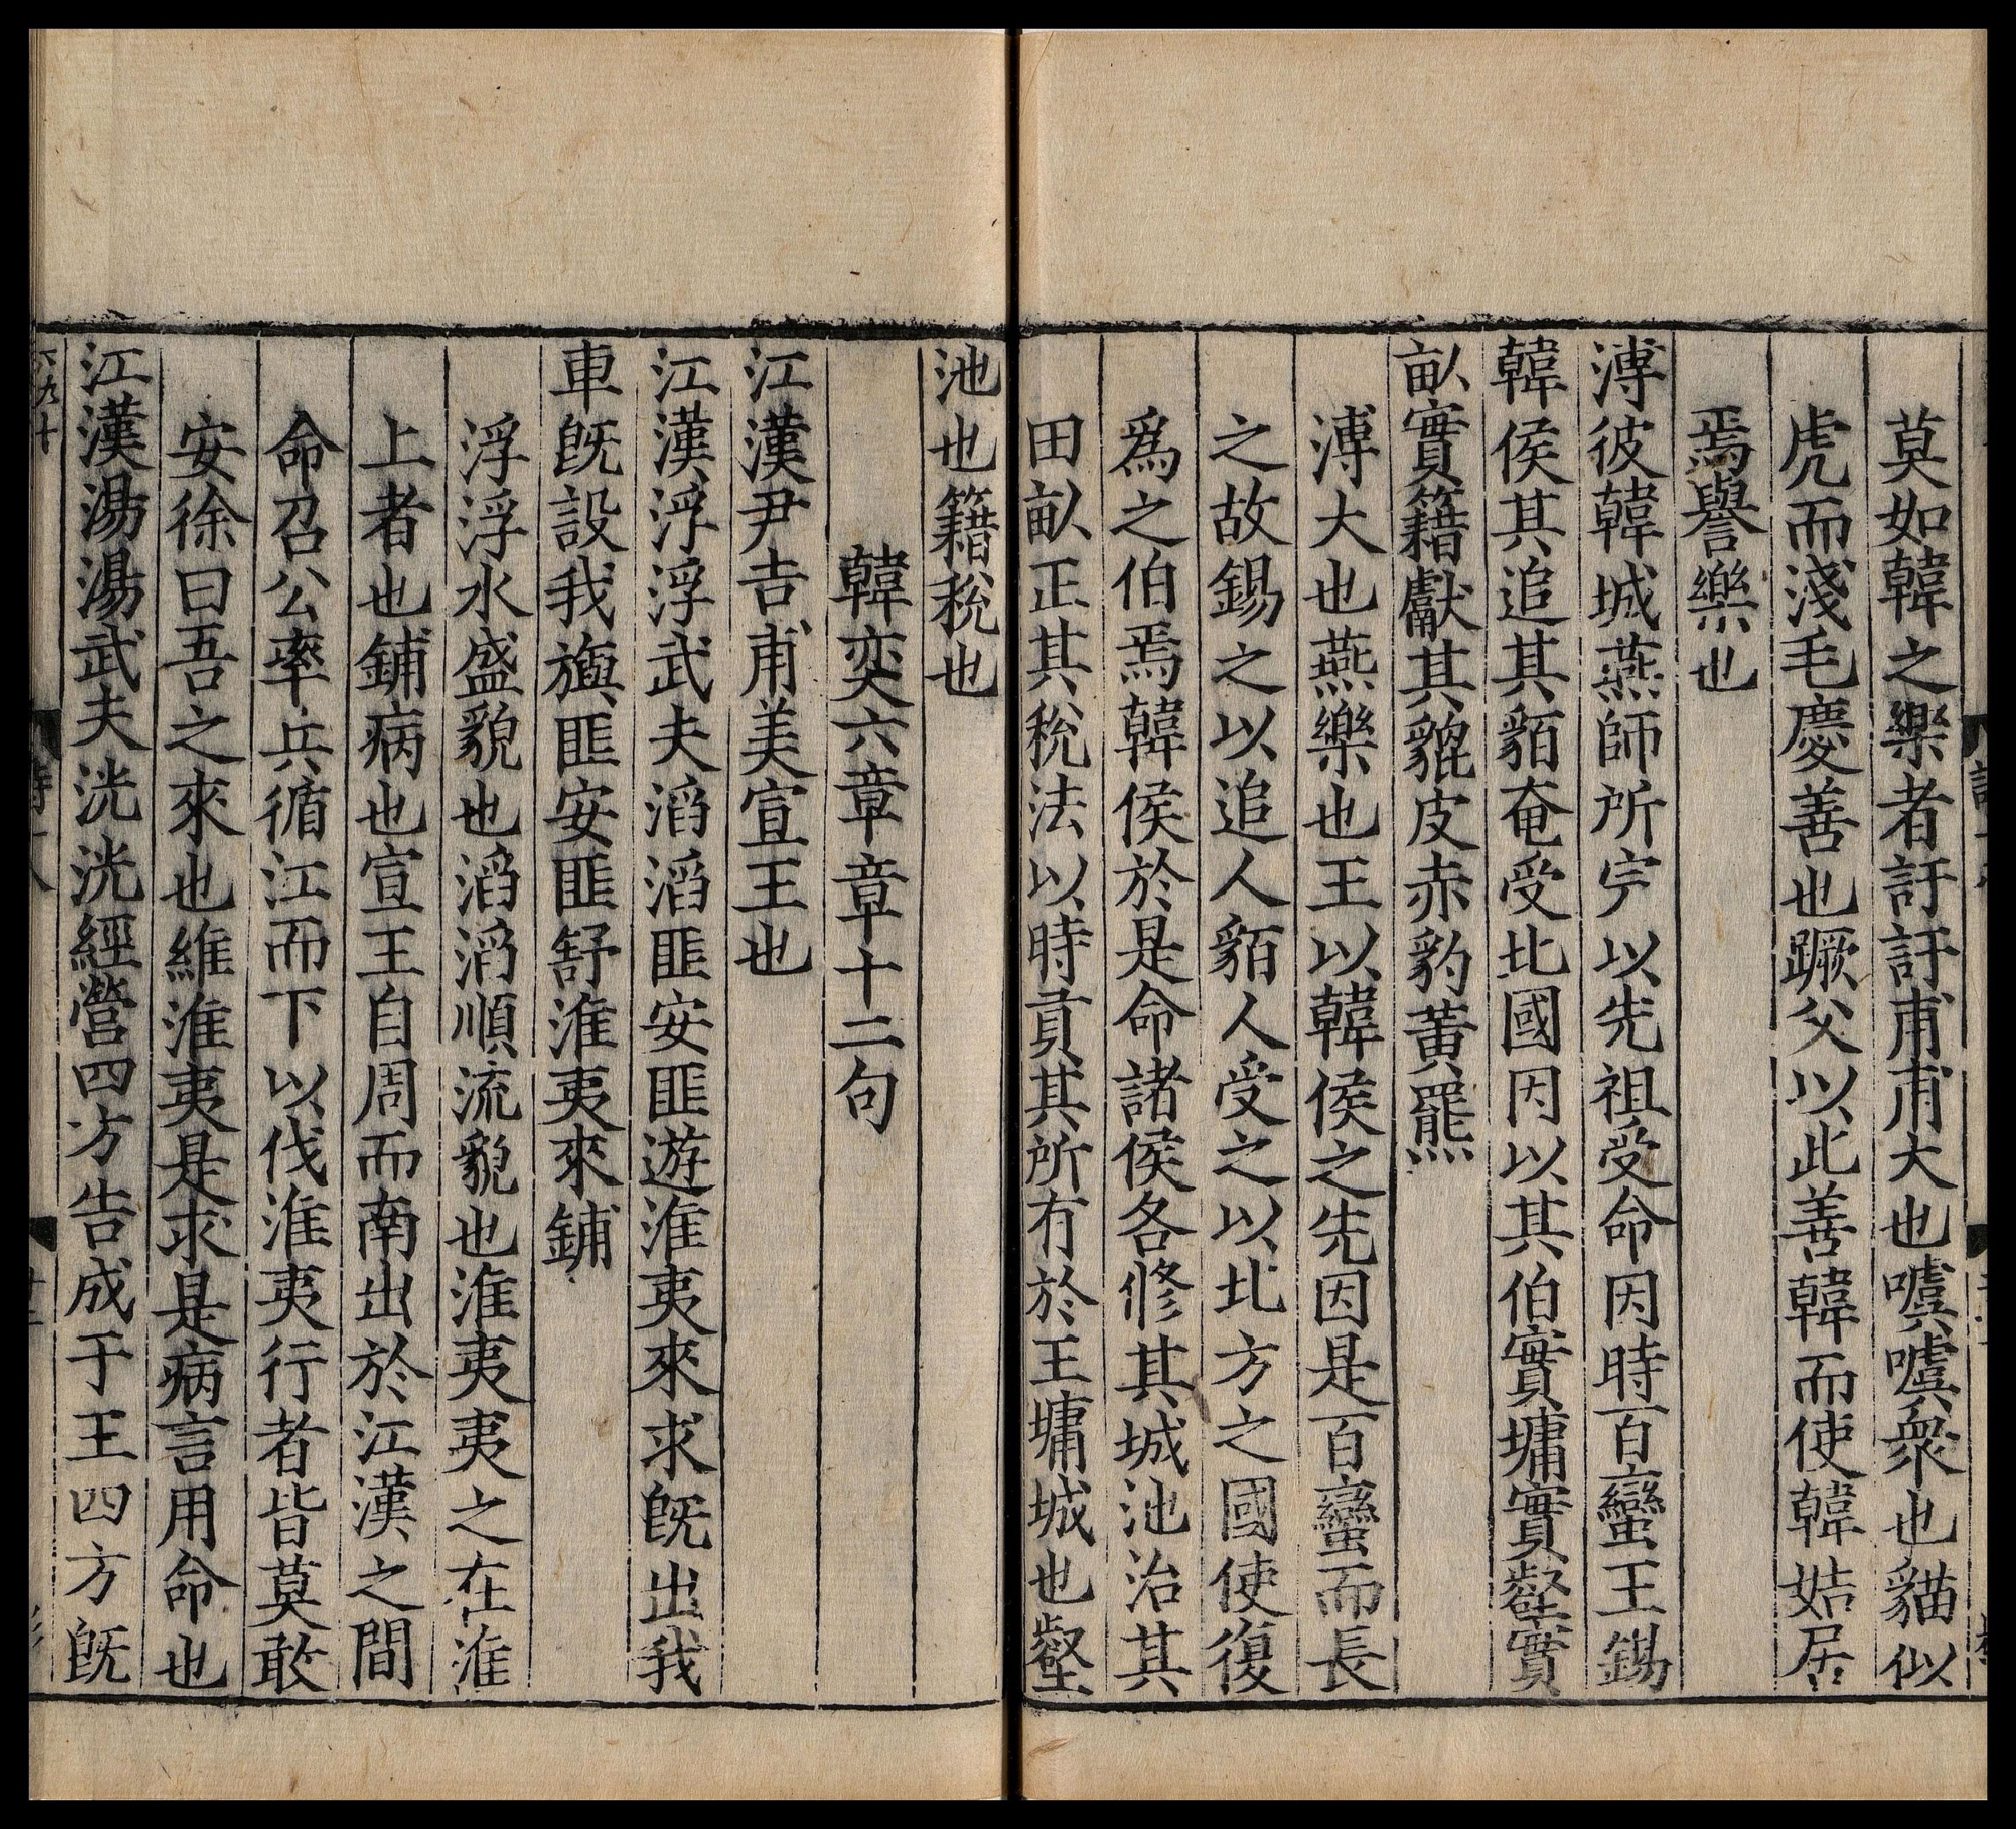 莫如韓之樂者訏訏甫甫大也噳噳衆也貓似
虎而淺毛慶善也蹶父以此善韓而使韓姞居
焉譽樂也
溥彼韓城燕師所完以先祖受命因時百蠻王錫
韓侯其追其貊奄受北國因以其伯實墉實壑實
畝實籍獻其貔皮赤豹黃羆
溥大也燕樂也王以韓侯之先因是百蠻而長
之故錫之以追人貊人受之以北方之國使復
爲之伯焉韓侯於是命諸侯各修其城池治其
田畝正其稅法以時貢其所有於王墉城也壑
池也籍稅也
韓奕六章章十二句
江漢尹吉甫美宣王也
江漢浮浮武夫滔滔匪安匪遊淮夷來求旣出我
車旣設我旟匪安匪舒淮夷來鋪
浮浮水盛貌也滔滔順流貌也淮夷夷之在淮
上者也鋪病也宣王自周而南出於江漢之間
命召公率兵循江而下以伐淮夷行者皆莫敢
安徐曰吾之來也維淮夷是求是病言用命也
江漢湯湯武夫洸洸經營四方告成于王四方旣